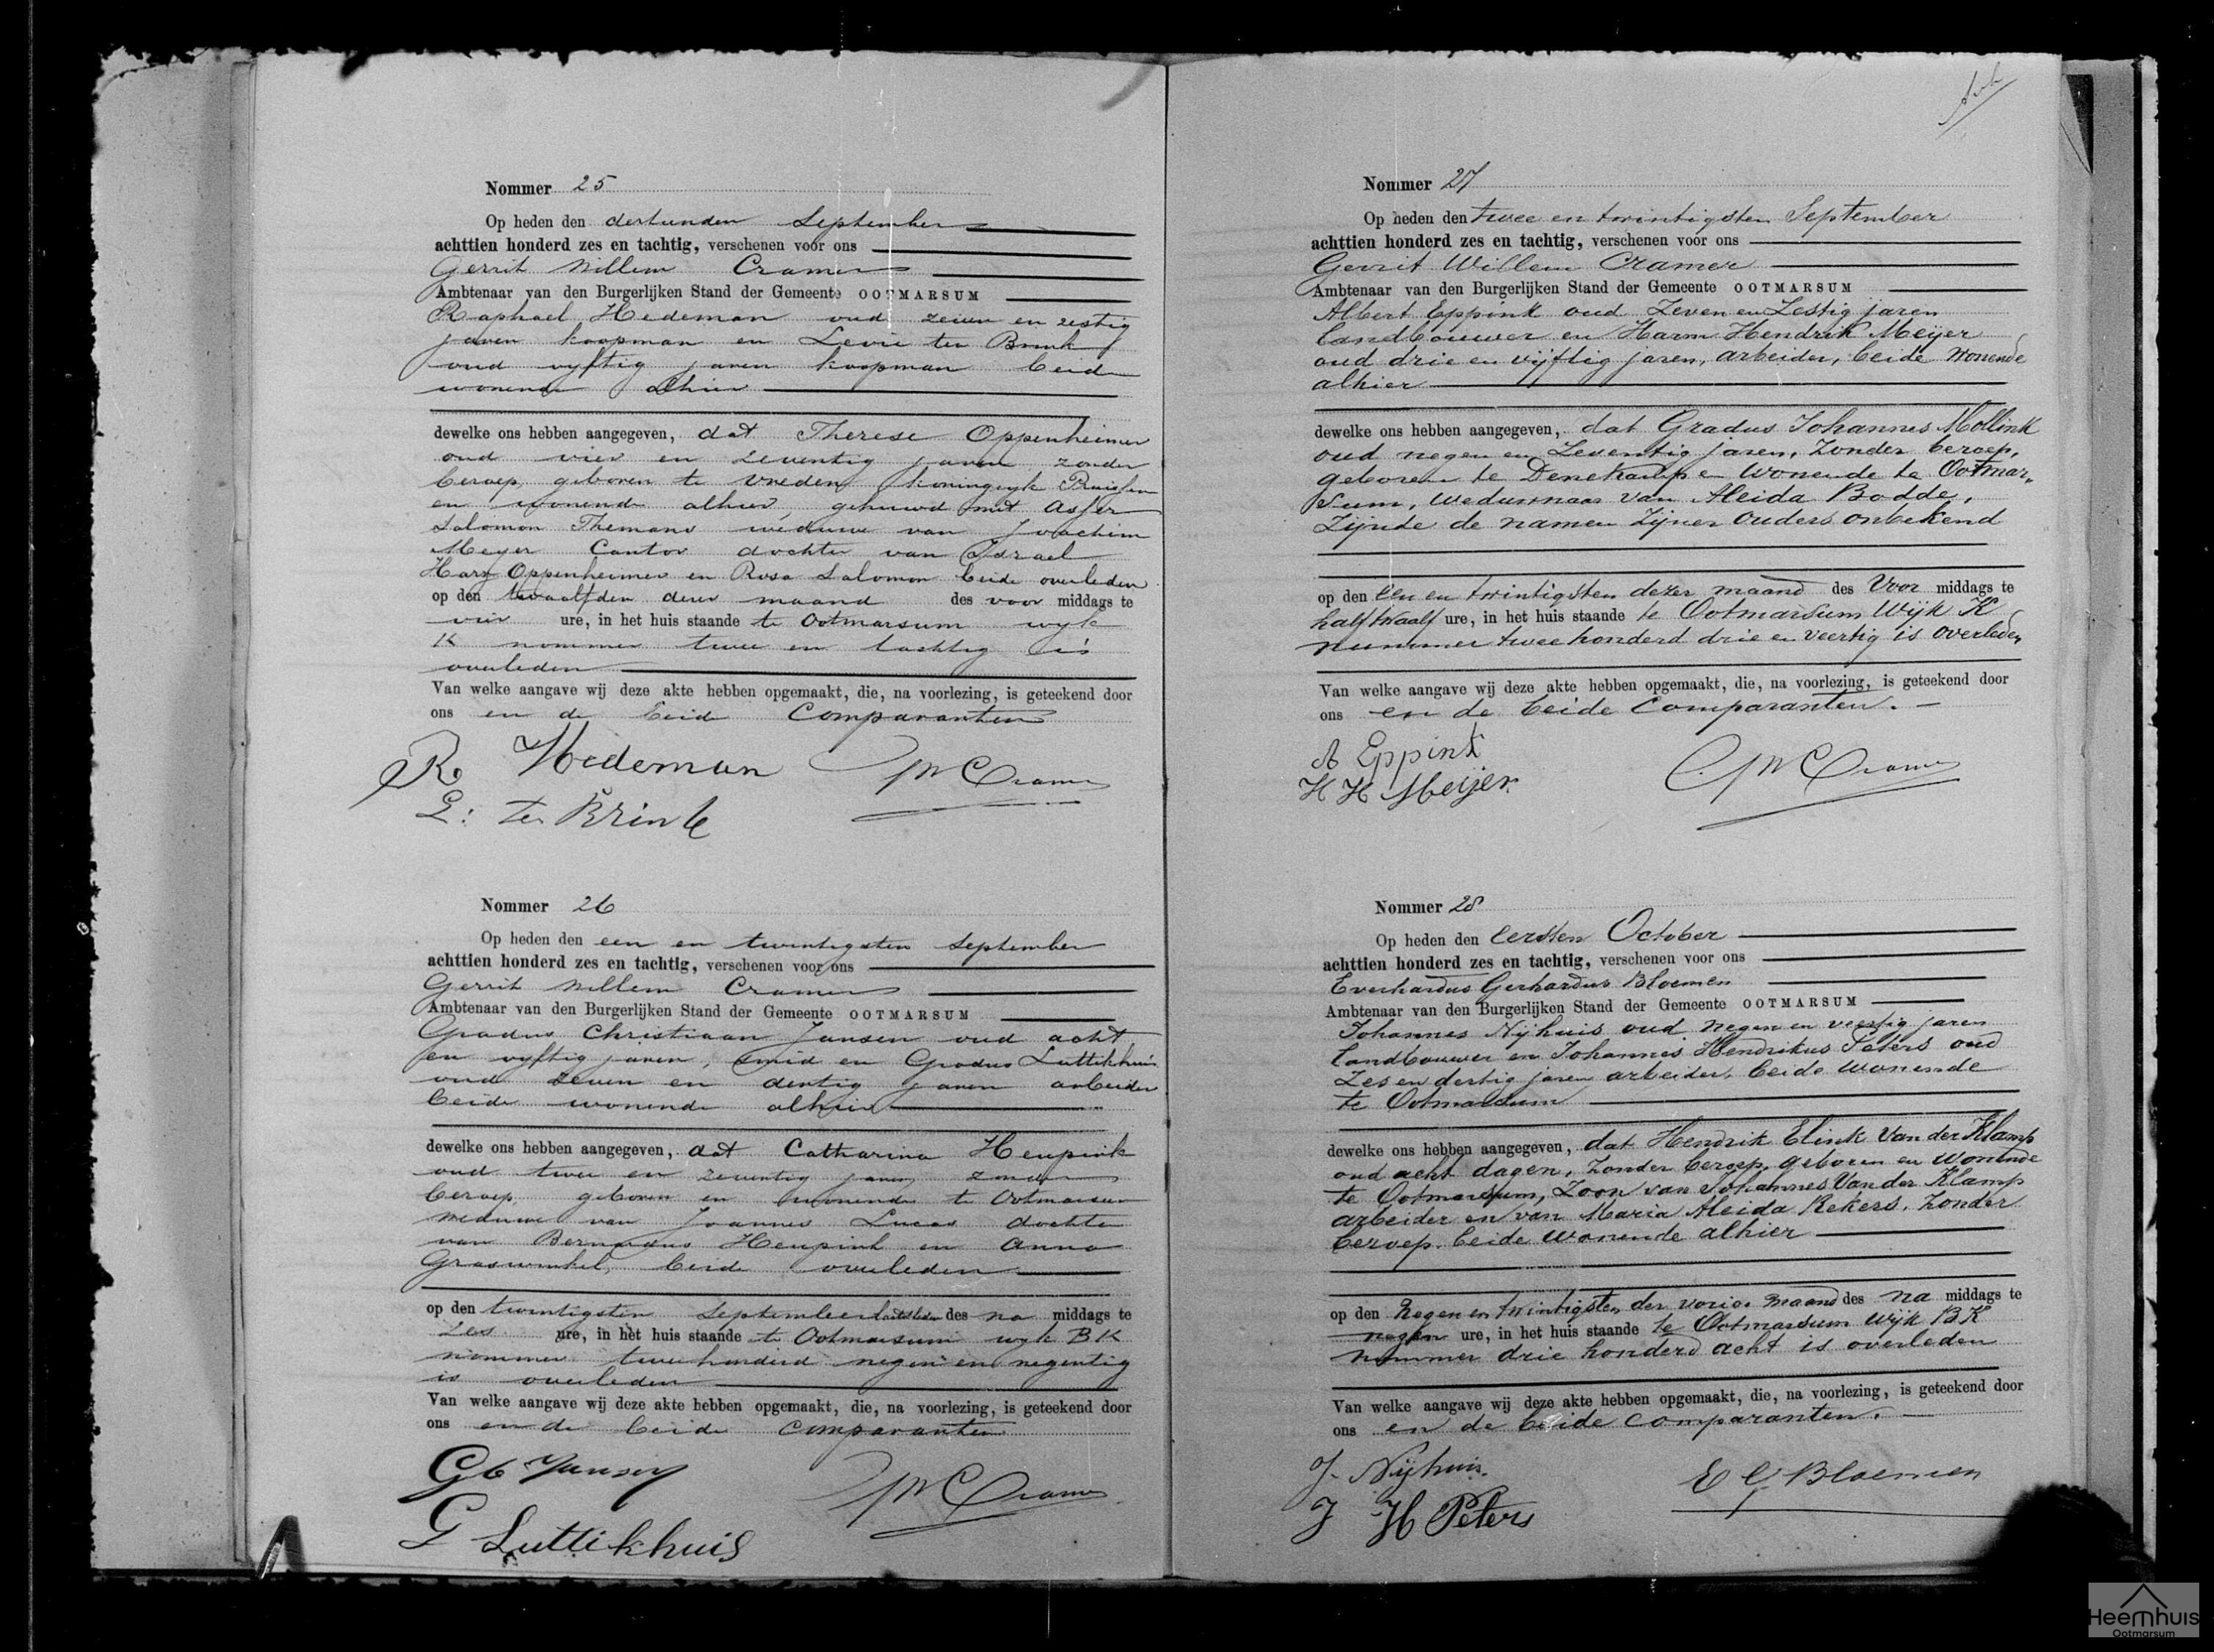 Nommer 25
Op heden den dertienden September
achttien honderd zes en tachtig, verschenen voor ons
Gerrit Willem Cramer
Ambtenaar van den Burgerlijken Stand der Gemeente OOTMARSUM
Raphael Hedeman oud zeven en zestig
jaren koopman en Levie ten Brink
oud vyftig jaren koopman beide
wonende alhier
dewelke ons hebben aangegeven, dat Therese Oppenheimer
oud vier en zeventig jaren zonder
beroep, geboren te Vreden, koningryk Pruissen
en wonende alhier, gehuwd met Asser
Salomon Themans weduwe van Joachim
Meyer Cantor dochter van Israel
Harz Oppenheimer en Rosa Salomon beide overleden
op den twaalfden dezer maand des voor middags te
vier ure, in het huis staande te Ootmarsum wyk
K nommer twee en tachtig is
overleden
Van welke aangave wij deze akte hebben opgemaakt, die, na voorlezing, is geteekend door
ons en de beide Comparanten
R. Hedeman GW Cramer
L: ten Brink
Nommer 26
Op heden den een en twintigsten September
achttien honderd zes en tachtig, verschenen voor ons
Gerrit Willem Cramer
Ambtenaar van den Burgerlijken Stand der Gemeente OOTMARSUM
Gradus Christiaan Jansen oud acht
en vyftig jaren, smid en Gradus Luttikhuis
oud zeven en dertig jaren arbeider
beide wonende alhier
dewelke ons hebben aangegeven, dat Catharina Heupink
oud twee en zeventig jaren zonder
beroep, geboren en wonende te Ootmarsum
weduwe van Joannes Lucas dochter
van Bernardus Heupink en Anna
Graswinkel, beide overleden
op den twintigsten September des na middags te
zes ure, in het huis staande te Ootmarsum wyk BK
nommer tweehonderd negen en negentig
is overleden
Van welke aangave wij deze akte hebben opgemaakt, die, na voorlezing, is geteekend door
ons en de beide Comparanten
GC Jansen GW Cramer
G Luttikhuis
Nommer 27
Op heden den twee en twintigsten September
achttien honderd zes en tachtig, verschenen voor ons
Gerrit Willem Cramer
Ambtenaar van den Burgerlijken Stand der Gemeente OOTMARSUM
Albert Eppink oud Zeven en Zestig jaren
landbouwer en Harm Hendrik Meijer
oud drie en vijftig jaren, arbeider, beide wonende
alhier
dewelke ons hebben aangegeven, dat Gradus Johannes Mollink
oud negen en Zeventig jaren, Zonder beroep,
geboren te Denekamp en wonende te Ootmar„
sum, Weduwnaar van Aleida Bodde,
Zijnde de namen Zijner Ouders onbekend
op den een en twintigsten dezer maand des Voor middags te
half twaalf ure, in het huis staande te Ootmarsum Wijk K
nummer twee honderd drie en veertig is overleden
Van welke aangave wij deze akte hebben opgemaakt, die, na voorlezing, is geteekend door
ons en de beide Comparanten.
A Eppink GW Cramer
H H Meijer
Nommer 28
Op heden den eersten October
achttien honderd zes en tachtig, verschenen voor ons
Everhardus Gerhardus Bloemen
Ambtenaar van den Burgerlijken Stand der Gemeente OOTMARSUM
Johannes Nijhuis oud negen en veertig jaren
landbouwer en Johannes Hendrikus Peters oud
Zes en dertig jaren arbeider, beide wonende
te Ootmarsum
dewelke ons hebben aangegeven, dat Hendrik Elink Van der Klamp
oud acht dagen, Zonder beroep, geboren en wonende
te Ootmarsum, Zoon van Johannes Van der Klamp
arbeider en van Maria Aleida Rekers, Zonder
beroep, beide wonende alhier
op den Negen en twintigsten der vorige maand des na middags te
negen ure, in het huis staande te Ootmarsum Wijk BK
nommer drie honderd acht is overleden
Van welke aangave wij deze akte hebben opgemaakt, die, na voorlezing, is geteekend door
ons en de beide comparanten.
J. Nijhuis. E G Bloemen
J H Peters
Heemhuis
Ootmarsum